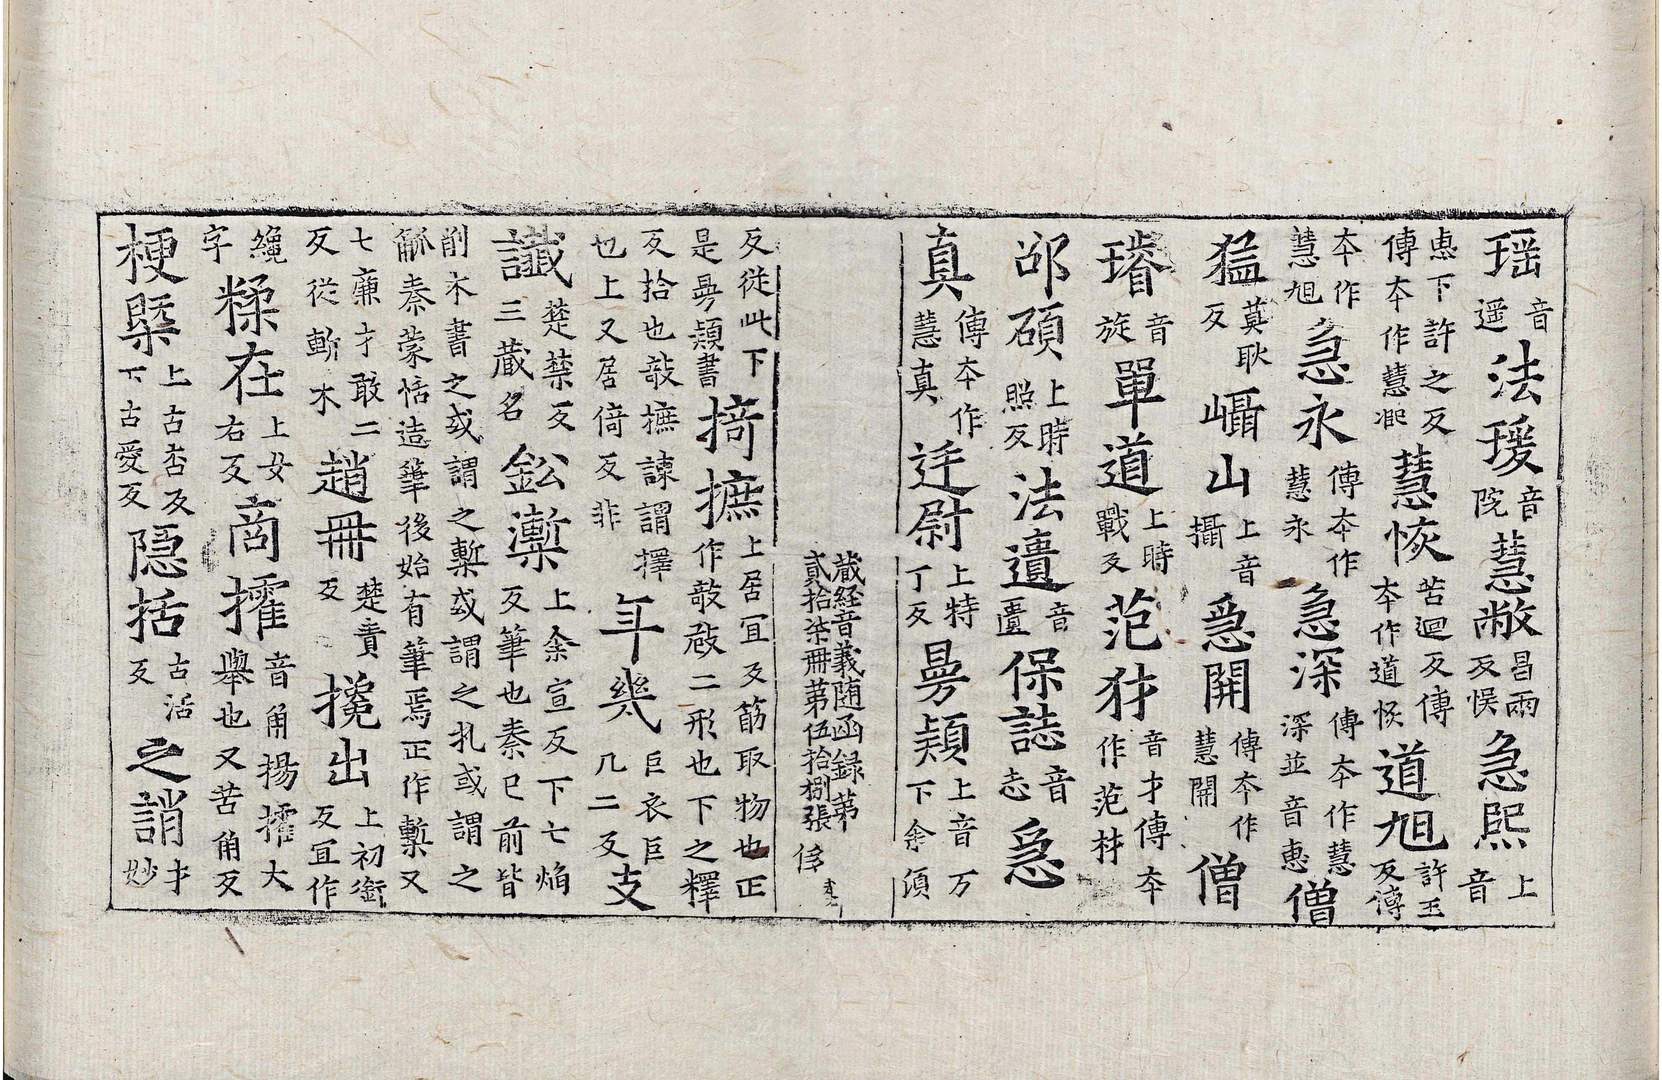 瑶音遥法瑗音院慧敝昌兩反悮急熙上音
惠下許之反傳夲作慧凞慧恢苦迴反傳夲作道恢道旭許玉反傳
夲作慧旭急永傳夲作慧永急深傳夲作慧深並音惠僧
猛莫耿反㠎山上音攝急開傳夲作慧開僧
璿音旋單道上時戰反范犲音才傳夲作范材
邵碩上時照反法遺音匱保誌音志急
真傳夲作慧真廷尉上特丁反曇頴上音万下余須
藏経音義随函録第
貳拾柒冊第伍拾捌張 侈
反従此下是曇頴書掎摭上居冝反筋取物也正作敧敁二形也下之釋
反拾也敧摭諫謂擇也上又居倚反非年幾巨衣巨几二反支
讖楚禁反三蔵名鈆槧上余宣反下七焰反筆也秦已前皆
削木書之或謂之槧或謂之札或謂之觚秦蒙恬造筆後始有筆焉正作槧又
七廉才敢二反従斬木趙冊楚責反攙出上初銜反冝作
纔字糅在上女右反商㩁音角揚㩁大舉也又苦角反
梗槩上古杏反下古愛反隠括古活反之誚才妙